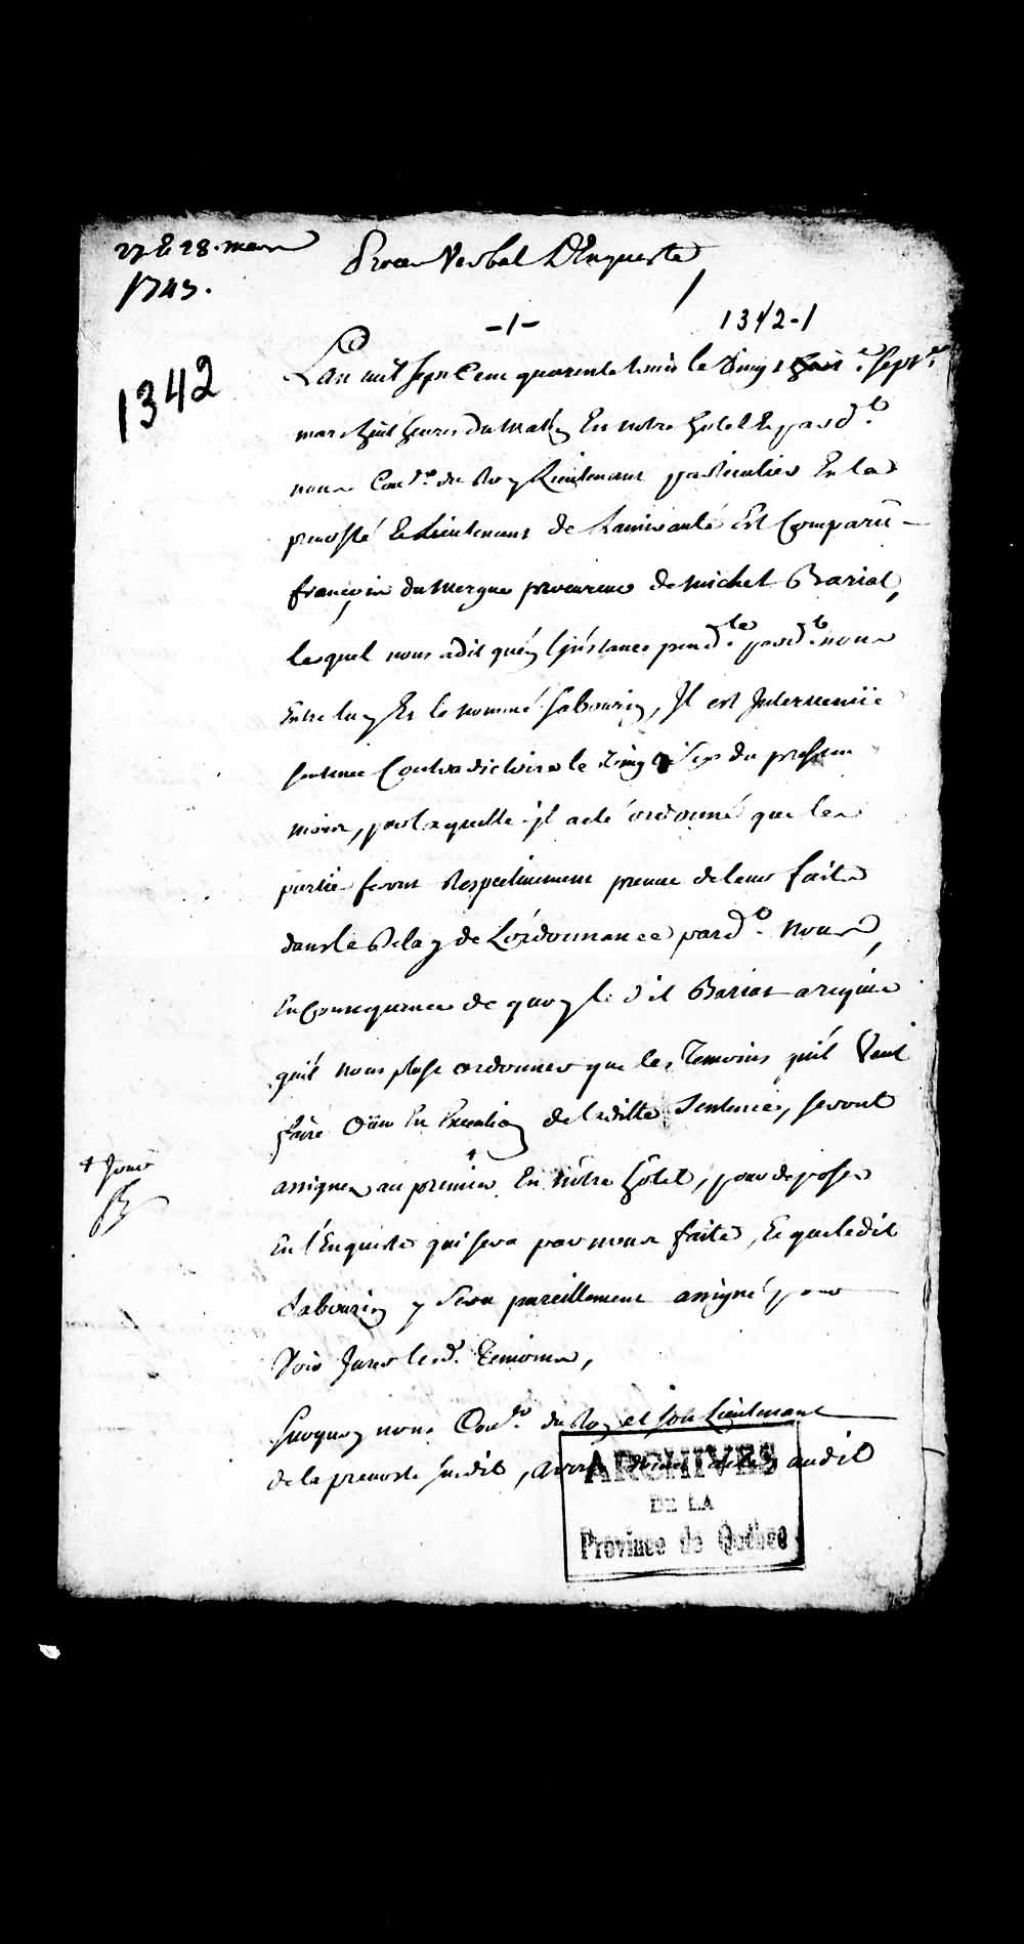 27 & 28. mars
1743.
Proces Verbal D'Enqueste
-1-
1342-1
1342
L'an mil sept Cent quarente trois le Vingt sept.e
mars huit heures du matin En notre hotel Et pard.t
nous Con.er du Roy Lieutenant particulier En la
prevosté Et Lieutenant de Lamirauté Est Comparü
françois dumergue procureur de michel Bariat,
lequel nous a dit qu'en l'instance pend.te pard.t nous
Entre luy Et le nommé Sabourin, Il est Intervenüe
sentence Contradictoire le Vingt Six du present
mois, par laquelle il a eté ordonné que les
partie feront Respectivement preuve de leurs faits
dans le Delay de L'ordonnance pard.t Nous,
En Consequence de quoy le dit Bariat a requis
qu'il nous plaise ordonner que les Temoins qu'il Veut
faire Oüir En Execution de laditte Sentence, seront
assignez au premier + En nôtre hôtel, pour deposer
+ Jour
En l'Enqueste qui sera par nous faite, Et que ledit
Sabourin y Sera pareillement assigné pour
Voir Jurer lesd. Temoins,
Surquoy nous Con.er du Roy et son Lieutenant
de la prevosté susdit, avons audit
ARCHIVES
DE LA
Province de Québec